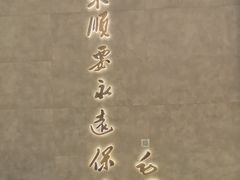 顺要永远保
毛